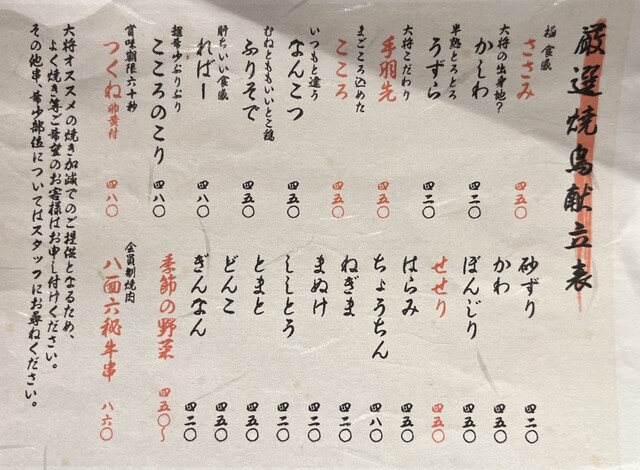 厳選焼鳥献立表
極 食感
ささみ 四五〇
大将の出身地？
かしわ 四二〇
半熟とろとろ
うずら 四二〇
大将こだわり
手羽先 四五〇
まごころ込めた
こころ 四五〇
いつもと違う
なんこつ 四五〇
むねとももいいとこ鶏
ふりそで 四五〇
肝ちいい食感
ればー 四八〇
超希少ぷりぷり
こころのこり 四八〇
賞味期限六十秒
つくね 卵黄付 四八〇
砂ずり 四二〇
かわ 四五〇
ぼんじり 四五〇
せせり 四五〇
はらみ 四五〇
ちょうちん 四八〇
ねぎま 四二〇
まぬけ 四二〇
ししとう 四二〇
とまと 四五〇
どんこ 四五〇
ぎんなん 四二〇
季節の野菜 四五〇～
会員制焼肉
八面六秘牛串 八六〇
大将オススメの焼き加減でのご提供となるため、
よく焼き等ご希望のお客様はお申し付けください。
その他串、希少部位についてはスタッフにお尋ねください。